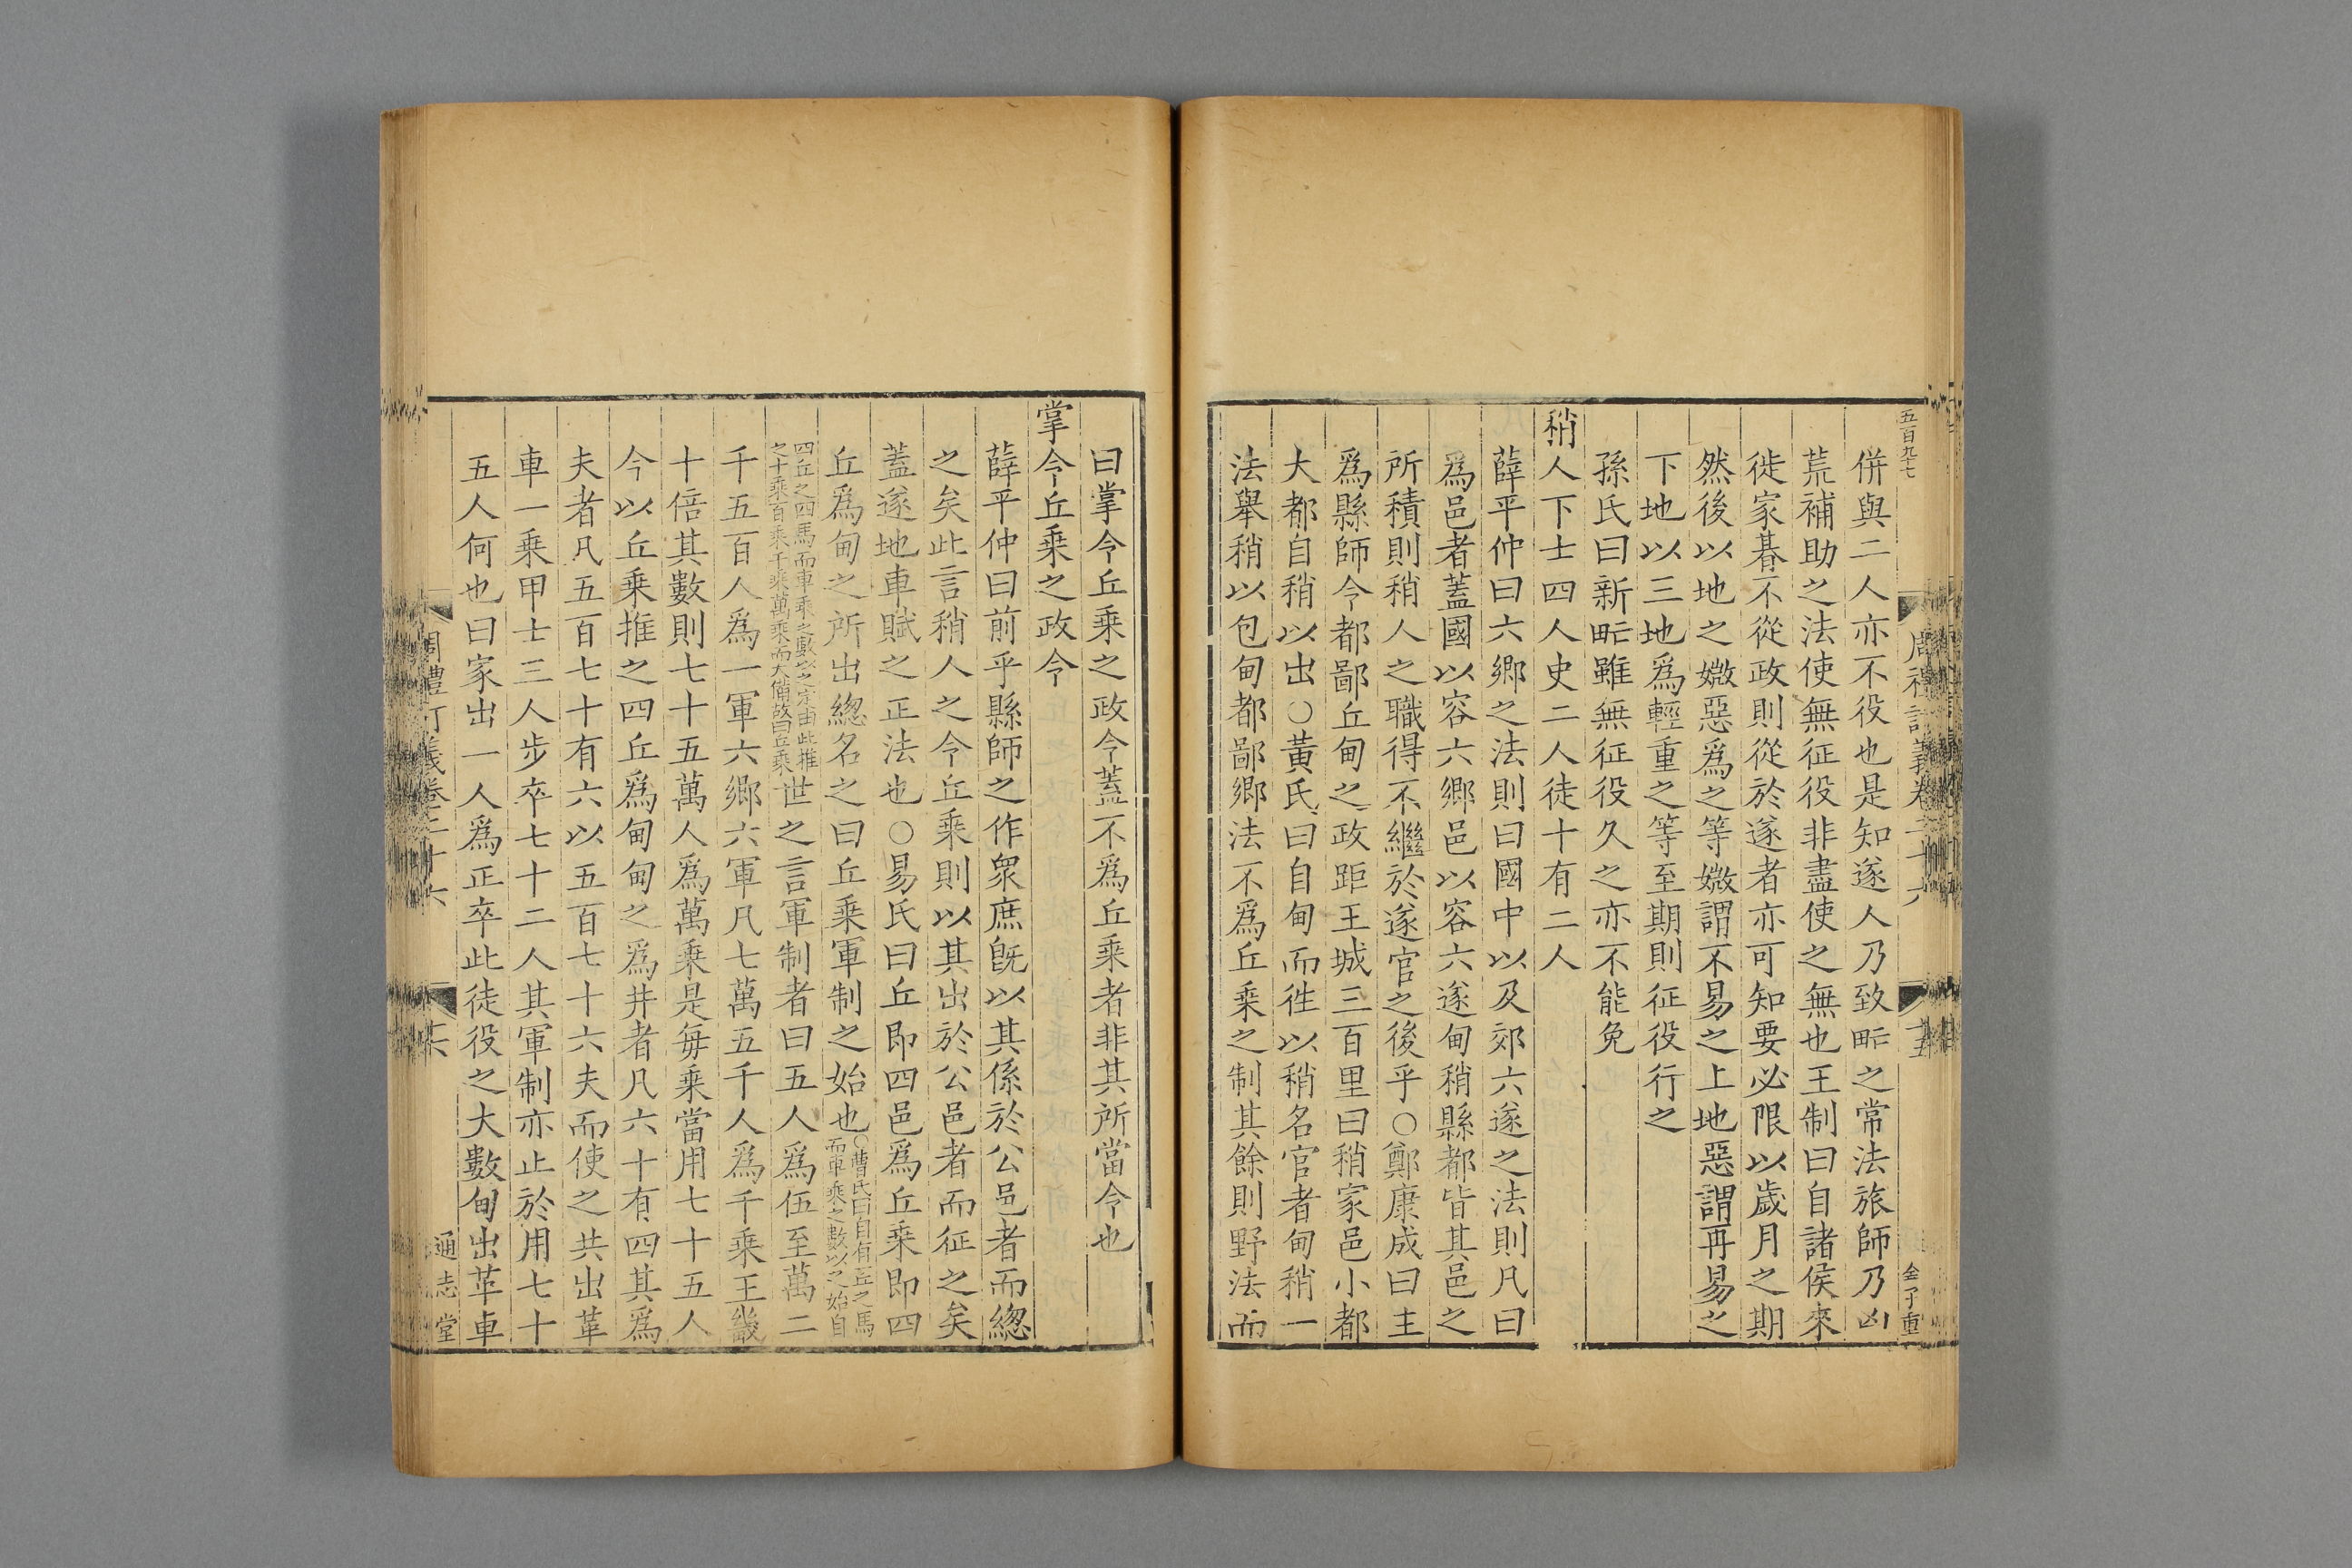 五百九十七
併與二人亦不役也是知遂人乃致甿之常法旅師乃凶
荒補助之法使無征役非盡使之無也王制曰自諸侯來
徙家朞不從政則從於遂者亦可知要必限以歲月之期
然後以地之媺惡爲之等媺謂不易之上地惡謂再易之
下地以三地爲輕重之等至期則征役行之
孫氏曰新甿雖無征役久之亦不能免
稍人下士四人史二人徒十有二人
薛平仲曰六鄉之法則曰國中以及郊六遂之法則凡曰
爲邑者蓋國以容六鄉邑以容六遂甸稍縣都皆其邑之
所積則稍人之職得不繼於遂官之後乎○鄭康成曰主
爲縣師令都鄙丘甸之政距王城三百里曰稍家邑小都
大都自稍以出○黃氏曰自甸而徃以稍名官者甸稍一
法舉稍以包甸都鄙鄉法不爲丘乘之制其餘則野法而
金子重
曰掌令丘乘之政令蓋不爲丘乘者非其所當令也
掌令丘乘之政令
薛平仲曰前乎縣師之作衆庶旣以其係於公邑者而緫
之矣此言稍人之令丘乘則以其出於公邑者而征之矣
蓋遂地車賦之正法也○易氏曰丘即四邑爲丘乘即四
丘爲甸之所出緫名之曰丘乘軍制之始也○曹氏曰自有丘之馬
而車乘之數以之始自
四丘之四馬而車乘之數以之定由此推
之十乘百乘千乘萬乘而大備故曰丘乘世之言軍制者曰五人爲伍至萬二
千五百人爲一軍六鄉六軍凡七萬五千人爲千乘王畿
十倍其數則七十五萬人爲萬乘是每乘當用七十五人
今以丘乘推之四丘爲甸甸之爲井者凡六十有四其爲
夫者凡五百七十有六以五百七十六夫而使之共出革
車一乘甲士三人步卒七十二人其軍制亦止於用七十
五人何也曰家出一人爲正卒此徒役之大數甸出革車
周禮訂義卷二十六
通志堂